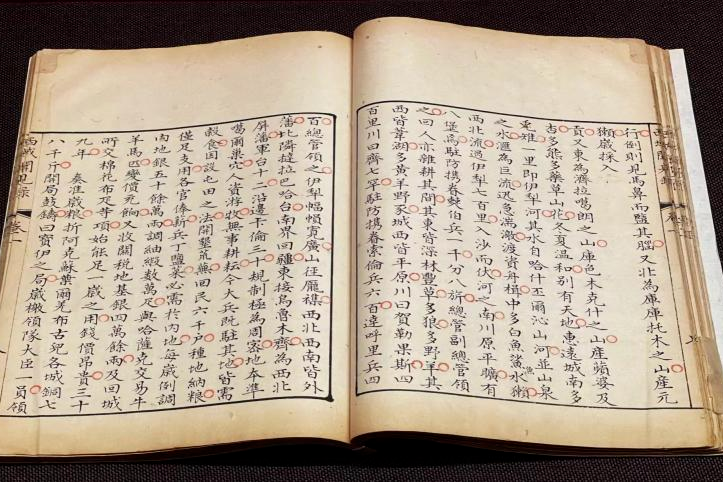 行倒則見馬鼻而鹽其腦又北為庫庫托木之山產元
獺歲採入
貢又東為濟拉噶朗之山庫色木克什之山產蘋婆及
吉多熊多藥草山花冬夏溫和別有天地惠遠城南多
雉一里即伊犁河其水自哈什丕爾沁山河並山泉
之水滙為巨流迅急湍激渡資舟楫中多白魚鯊水獺
西北流過伊犁七百里入沙而伏河之南川原平曠有
八堡焉駐防携眷伯兵一千分八旂總管副總管領
之回人亦雜耕其間其東皆深林豐草多狼多野羊其
西皆葦湖多黃羊野豕城西皆平原川曰賀勒果斯四
百里川曰齊七罕駐防携眷索倫兵六百遠呼里兵四
百總管領之伊犁幅幀寬廣山徑龐襍西北西南皆外
藩北隣撻拉巴哈台南界回疆東接烏魯木齊為西北
屏藩軍台十二沿邊卡倫三十規制極為周密地本準
噶爾巢穴人資游牧無事耕耘今大兵既駐其地皆需
穀食因設屯田之法開墾荒蕪回民六千户種地納粮
僅足支用各官俸薪兵丁鹽菜必需於內地每歲例調
內地銀五十餘萬兩調紬緞數萬疋與哈薩克交易牛
羊馬匹變價充餉又收關稅地基銀四萬餘兩及回城
所交棉花布疋等項始能足一歲之用錢價昂貴三十
九年奏准歲粮折阿克蘇葉爾羌布古兒各城銅七
八千斤開局鼓鑄曰寶伊之局歲檄領隊大臣一員領
西域聞見録 卷一